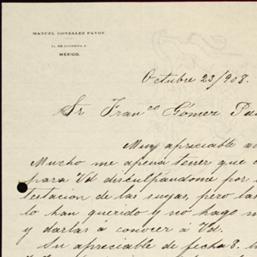 MANUEL GONZALEZ PAVON
MEXICO.
Octubre 23/908.
Sr Franco Gomez
Muy apreciable
Mucho me apena tener que
para Vd disculpandome por
testacion de las suyas, pero las
lo han querido y no hago m
y darlas á conocer á Vd.
Su apreciable de fecha 8.